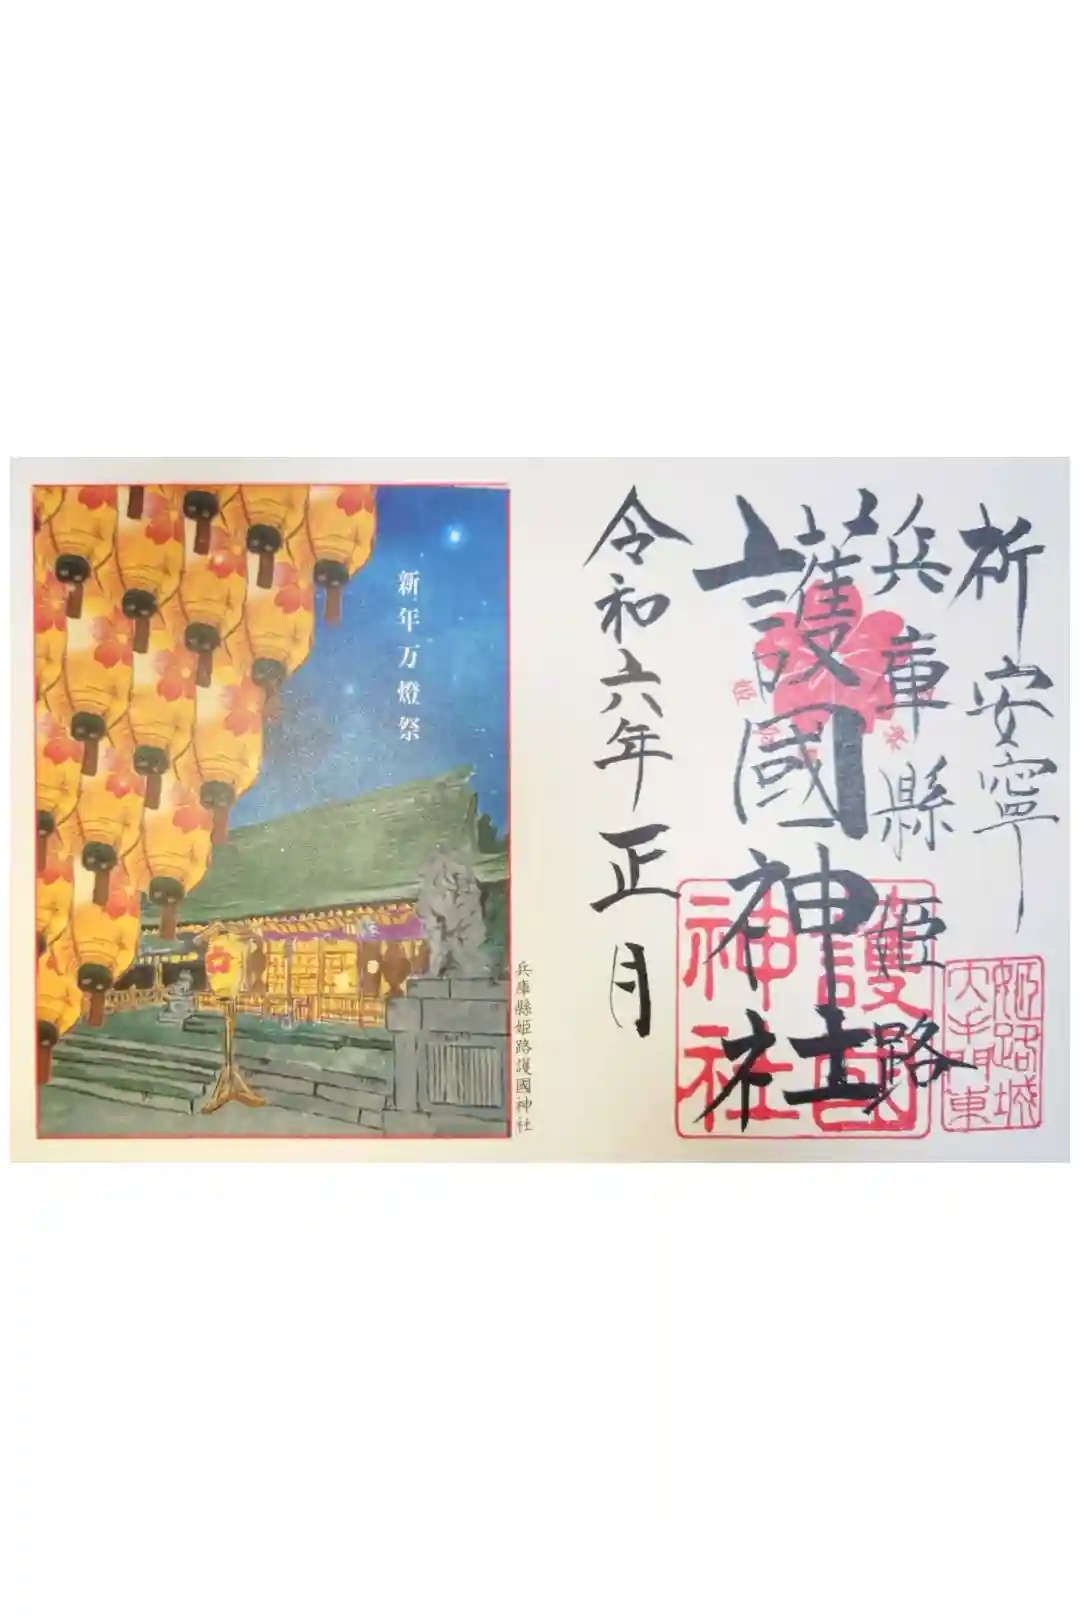 祈安寧
兵庫縣姫路
護國神社
令和六年正月
護國
神社
姫路城
大手門東
新年万燈祭
兵庫縣姫路護國神社